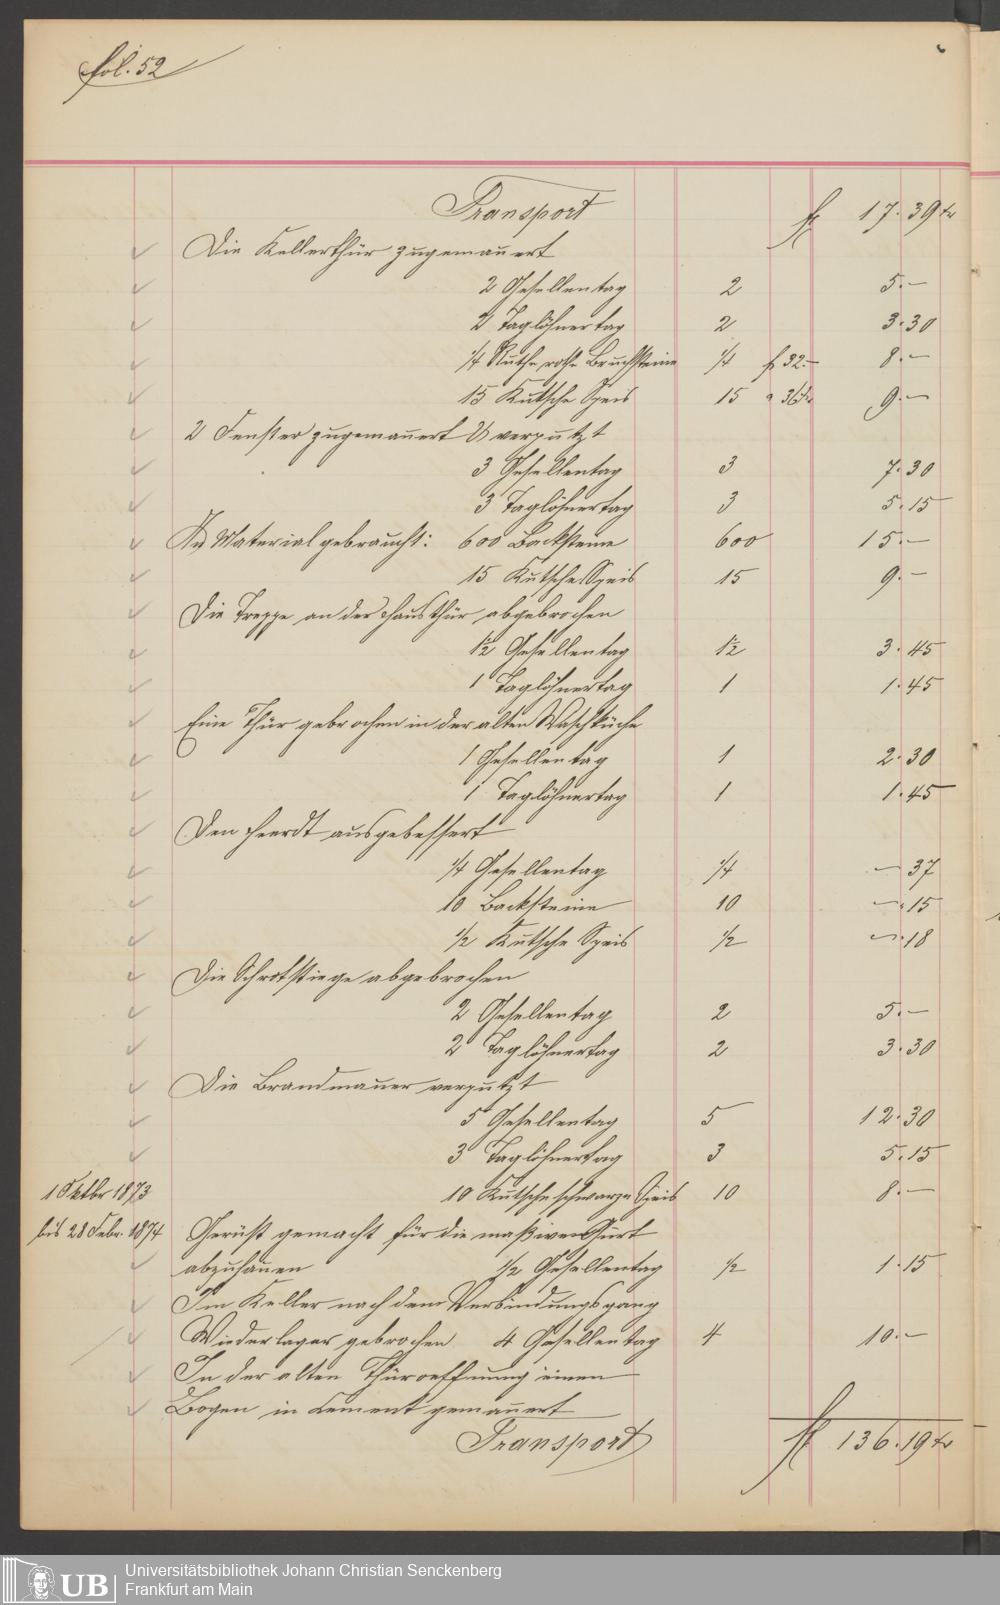 fol. 52
Transport f 17. 39 kr
Die Kellerthür zugemauert
2 Gesellentag 2 5. —
2 Taglöhnertag 2 3. 30
1/4 Ruthe rothe Bruchsteine 1/4 f 32. — 8. —
15 Kutsche Speis 15 " 36 kr 9. —
2 Fenster zugemauert & verputzt
3 Gesellentag 3 7. 30
3 Taglöhnertag 3 5. 15
An Material gebraucht: 600 Backsteine 600 15. —
15 Kutsche Speis 15 9. —
Die Treppe an der Hausthür abgebrochen
1½ Gesellentag 1½ 3. 45
1 Taglöhnertag 1 1. 45
Eine Thür gebrochen in der alten Waschküche
1 Gesellentag 1 2. 30
1 Taglöhnertag 1 1. 45
Den Heerdt ausgebessert
1/4 Gesellentag 1/4 — 37
10 Backsteine 10 — . 15
1/2 Kutsche Speis 1/2 — . 18
Die Schrotstiege abgebrochen
2 Gesellentag 2 5. —
2 Taglöhnertag 2 3. 30
Die Brandmauer verputzt
5 Gesellentag 5 12. 30
3 Taglöhnertag 3 5. 15
1 Oktbr 1873 10 Kutsche schwarze Speis 10 8. —
bis 28 Febr. 1874 Gerüst gemacht für die maßiven Gurt
abzuhauen 1/2 Gesellentag 1/2 1. 15
Im Keller nach dem Verbindungsgang
Wiederlager gebrochen 4 Gesellentag 4 10. —
In der alten Thüroeffnung einen
Bogen in Cement gemauert
Transport f 136. 19 kr
UB
Universitätsbibliothek Johann Christian Senckenberg
Frankfurt am Main